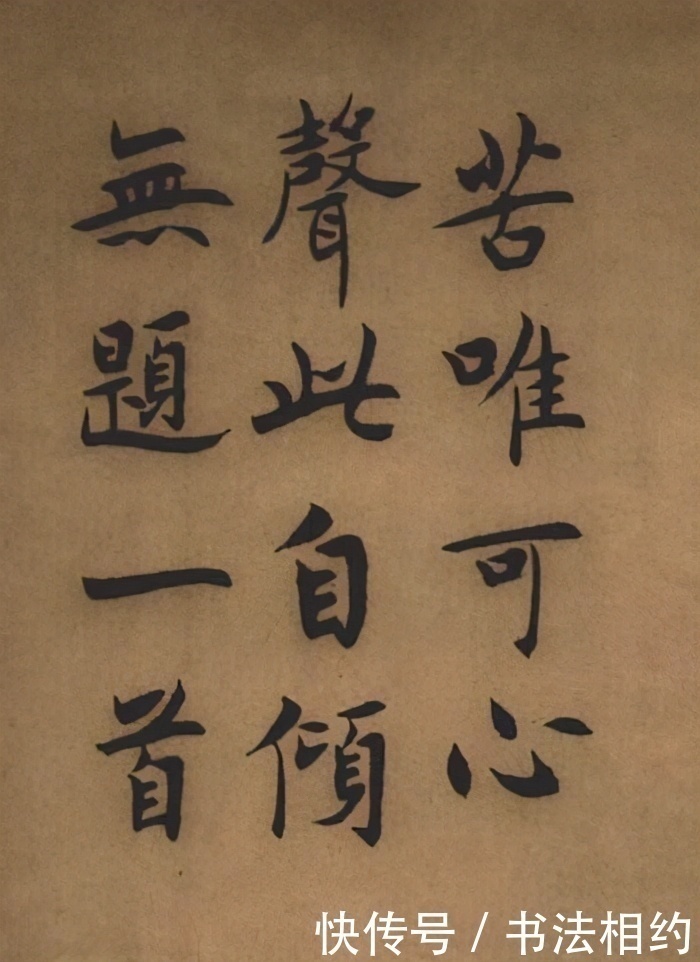 苦唯可心
聲此自傾
無題一首
快传号 / 书法相约